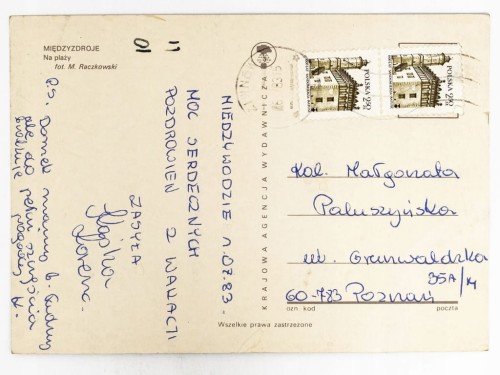 MIĘDZYZDROJE
Na plaży
fot. M. Raczkowski
11
10
MIĘDZYWODZIE 11.07.83.
MOC SERDECZNYCH
POZDROWIEŃ Z WAKACJI
ZASYŁA
Korena.
P.S. Domek mamy b. ładny
ale do pełni szczęścia
brakuje
pogody
KRAJOWA AGENCJA WYDAWNICZA
POLSKA 2,50 ZŁ
POLSKA 2,50 ZŁ
Kol. Małgorzata
Paluszyńska
ul. Grunwaldzka
35A/14
60-783 Poznań
ozn. kod
poczta
Wszelkie prawa zastrzeżone